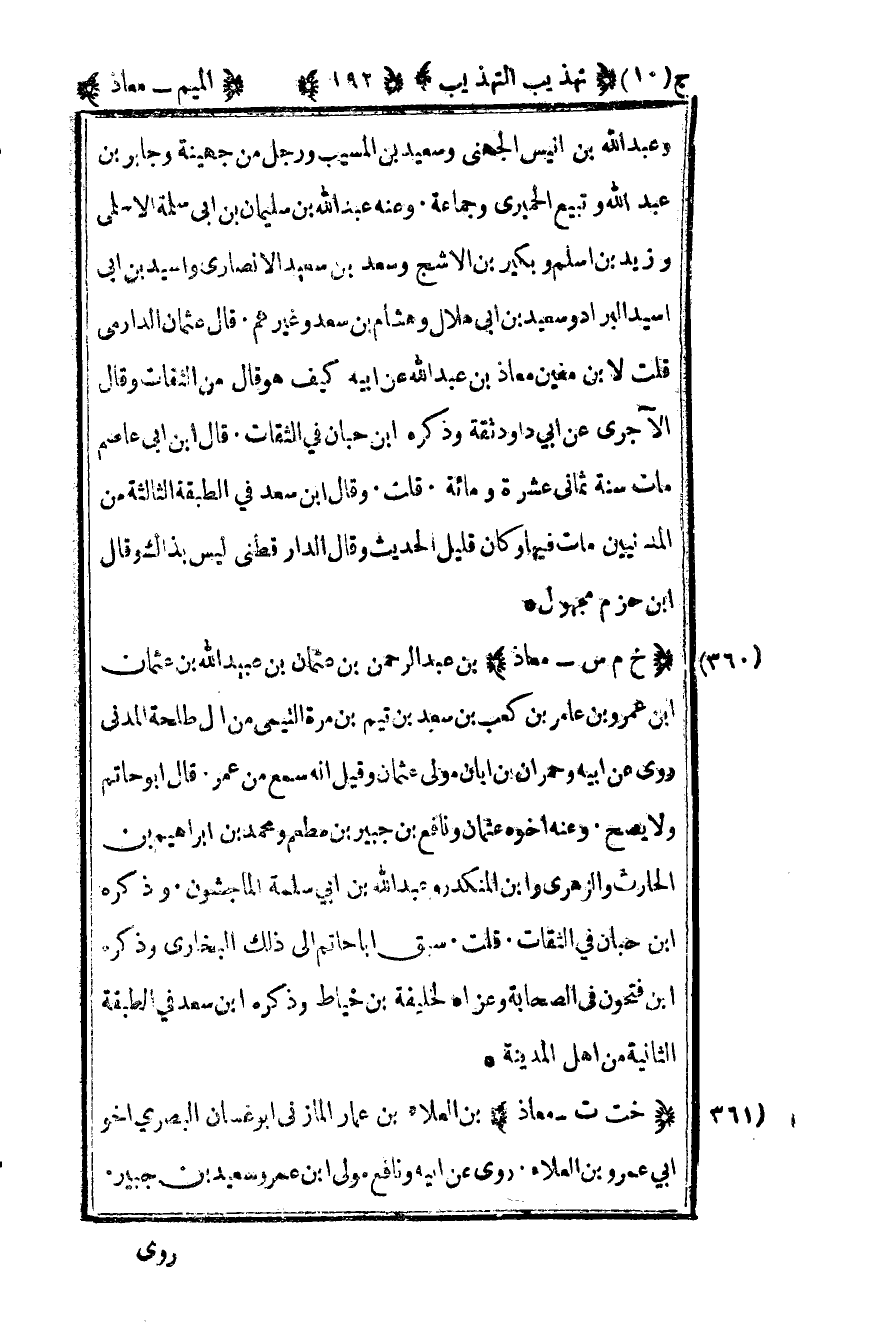 ج(١٠) ﴿ تهذيب التهذيب ﴾ ﴿ ١٩٢ ﴾ ﴿ الميم ــ معاذ ﴾
وعبدالله بن انيس الجهنى وسعيد بن المسيب ورجل من جهينة وجابر بن
عبد الله و تبيع الحميرى وجماعة ٠ وعنه عبدالله بن سليمان بن ابى سلمة الاسلمى
و زيد بن اسلم و بكير بن الاشج وسعد بن سعيد الانصارى واسيد بن ابى
اسيد البراد وسعيد بن ابى هلال وهشام بن سعد وغيرهم ٠ قال عثمان الدارمى
قلت لابن معين معاذ بن عبدالله عن ابيه كيف هو قال من الثقات وقال
الآجرى عن ابي داود ثقة وذكره ابن حبان في الثقات ٠ قال ابن ابى عاصم
مات سنة ثمانى عشرة و مائة ٠ قلت ٠ وقال ابن سعد في الطبقة الثالثة من
المدنيين مات فيها وكان قليل الحديث وقال الدار قطنى ليس بذاك وقال
ابن حزم مجهول *
(٣٦٠) ﴿ خ م س ــ معاذ ﴾ بن عبدالرحمن بن عثمان بن عبيدالله بن عثمان
ابن عمرو بن عامر بن كعب بن سعد بن تيم بن مرة التيمى من ال طلحة المدنى
روى عن ابيه وحمران بن ابان مولى عثمان وقيل انه سمع من عمر ٠ قال ابوحاتم
ولا يصح ٠ وعنه اخوه عثمان ونافع بن جبير بن مطعم ومحمد بن ابراهيم بن
الحارث والزهرى وابن المنكدر وعبدالله بن ابي سلمة الماجشون ٠ و ذكره
ابن حبان في الثقات ٠ قلت ٠ سبق اباحاتم الى ذلك البخارى وذكره
ابن فتحون فى الصحابة وعزاه لخليفة بن خياط وذكره ابن سعد في الطبقة
الثانية من اهل المدينة *
(٣٦١ ﴿ خت ت ــ معاذ ﴾ بن العلاء بن عمار المازنى ابوغسان البصري اخو
ابي عمرو بن العلاء ٠ روى عن ابيه ونافع مولى ابن عمر وسعيد بن جبير ٠
روى